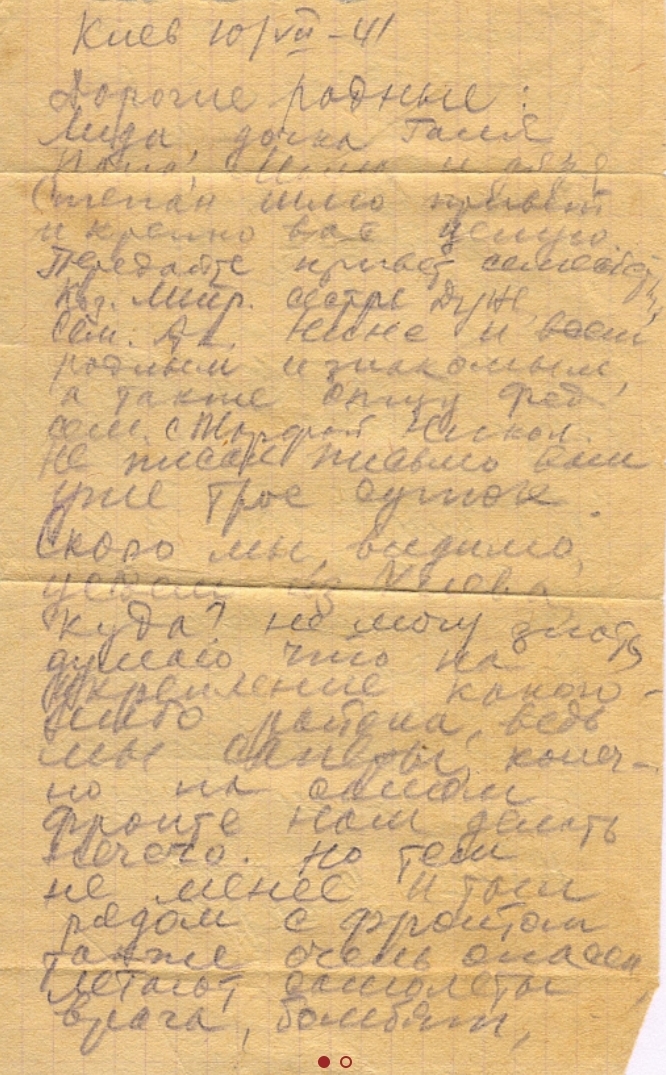 Киев 10/VII-41
Дорогие родные:
Лида, дочка Галя
Степан шлю привет
и крепко вас целую.
Передайте привет семейству
Куз. Мир. сестре Дуже,
сем. Нюне и всем
родным и знакомым,
а также Фед.
сем. с Никол.
Не писал письмо вам
уже трое суток.
Скоро мы, видимо,
уедем из Киева,
куда? не могу знать
думаю что на
укрепление какого-
либо района, ведь
мы конеч-
но на самом
фронте нам делать
нечего. Но тем
не менее и там
рядом с фронтом
также очень опасен
летают самолеты
врага, бомбят,